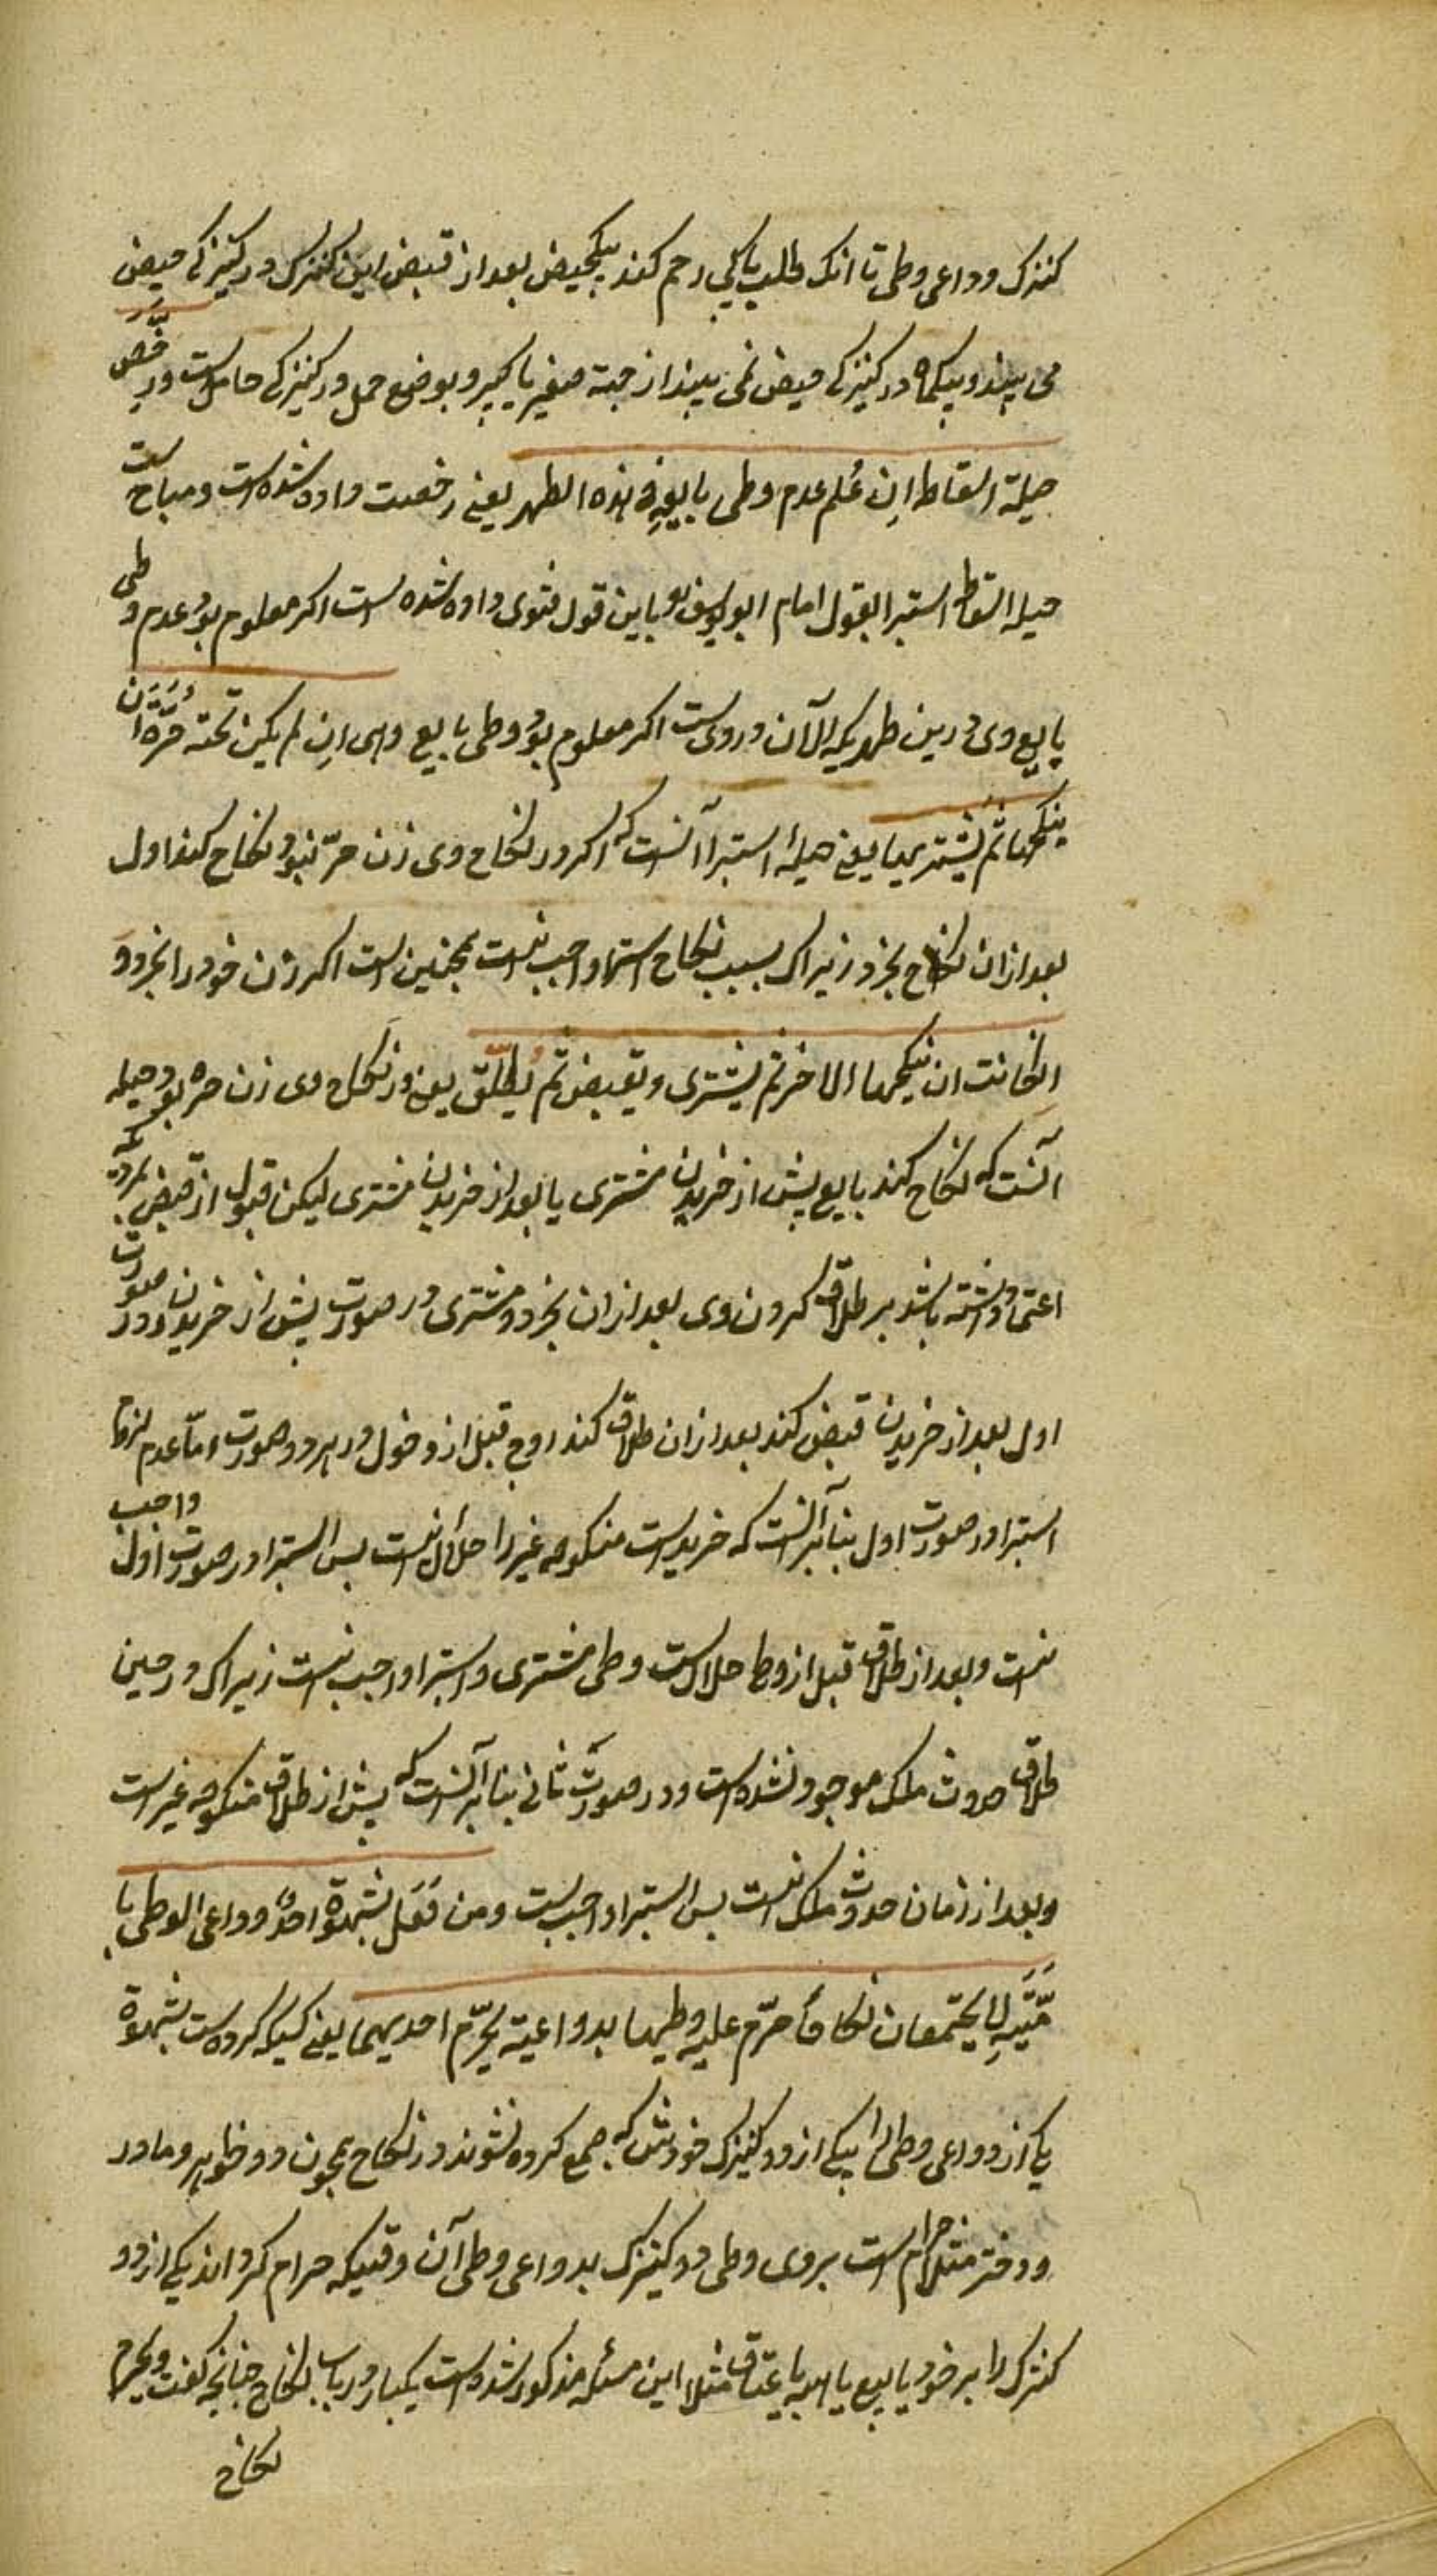 کنیزک ودواعی وطی تا انک طلب پاکی رحم کند بیکحیض بعد از قبض این کنیزک در کنیزکی حیض
می بیند وبیکماه در کنیزکی حیض نمی بیند از جهة صغیر یا کبیر وبوضع حمل در کنیزکی حاملست ورخّص
حیلة اسقاط ان عُلم عدم وطی بایعه فی هذه الطهر یعنی رخصت داده شده است ومباحست
حیله اسقاط استبرا بقول امام ابویوسف وباین قول فتوی داده شده است اکر معلوم بود عدم وطی
بایع وی درین طهر اکر معلوم بود وطی بایع وهی ان لم یکن تحته حرّة ان
ینکحها ثمّ یشتریها یعنی حیلهٔ استبرا آنست که اکر در نکاح وی زن حرّه نبود نکاح کند اول
بعد ازان نکاح بخرد زیراک بسبب نکاح استبرا واجب نیست همچنین است اکر زن خود را بخرد و
ان کانت ان ینکحها الاخر ثم یشتری ویقبض ثم یُطلّق یعنی در نکاح وی زن حره بود حیله
آنست که نکاح کند بایع پیش از خریدن مشتری یا بعد از خریدن مشتری لیکن قبل از قبض بمردیکه
اعتماد داشته باشد بر طلاق کردن وی بعد ازان بخرد مشتری در صورت پیش از خریدن ودر صورت
اول بعد از خریدن قبض کند بعد ازان طلاق کند زوج قبل از دخول در هر دو صورت امّا عدم لزوم
استبرا در صورت اول بنا بر آنست که خریدست منکوحه غیر را حلال نیست پس استبرا در صورت اول واجب
نیست وبعد از طلاق قبل از وطی حلالست وطی مشتری واستبرا واجب نیست زیراک در حین
طلاق حدوث ملک موجود نشده است ودر صورت ثانی بنا بر آنست که پیش از طلاق منکوحه غیر است
وبعد از زمان حدوث ملک نیست پس استبرا واجب نیست ومن فَعَل بشهوة احد دواعی الوطی با
مَتَیه لا یجتمعان نکاحاً حرّم علیه وطیها بدواعیة یحرّم احدیهما یعنی کسیکه کرده است بشهوة
یکی از دواعی وطی را بیکی از دو کنیزک خودش که جمع کرده نشوند در نکاح همچون دو خواهر ومادر
ودختر مثلا حرام است بروی وطی دو کنیزک بدواعی وطی آن وقتیکه حرام کرداند یکی از دو
کنیزک را بر خود یا ببیع یا بهبه یا بعتاق مثلا این مسئله مذکور شده است یکبار در باب نکاح چنانچه کفت ویحرم
نکاح